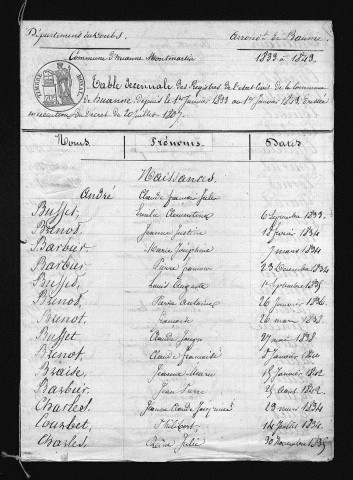 Département du Doubs. Arrond.t de Baume.
Commune d'huanne Montmartin 1833 à 1843.
TIMBRE ROYAL
Table décennale des Registres de l'état civil de la Commune
de huanne, depuis le 1er Janvier 1833 au 1er Janvier 1843
en exécution du Décret du 20 Juillet 1807.
Noms. Prénoms. Dates
Naissances.
André Claude françois Jules
Busset, Emilie Clementine 6 1833.
Brenot Jeanne Justine février 1834
Barbier Marie Joséphine mars 1834
Barbier Pierre 23 Décembre 1834
Busset, Louis Auguste 1835
Brenot Pierre Antoine 26 Janvier 1836.
Brenot 26 mars 1838
Busset Claude Joseph 1838
Brenot. Claude 8 Janvier
Braize, Jeanne Marie 15 Janvier 1842
Barbier. Jean Pierre 25 Août 1842.
Charles. Jeanne Claude 23 mars 1834
Courbet, Philibert 14 Juillet 1834
Charles. Reine Julie 30 Novembre 1835